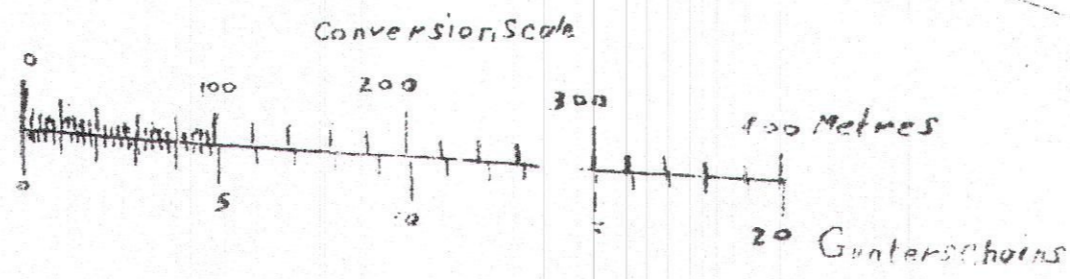 Conversion Scale
0 100 200 300 400 Metres
0 5 10 20 Gunterschains